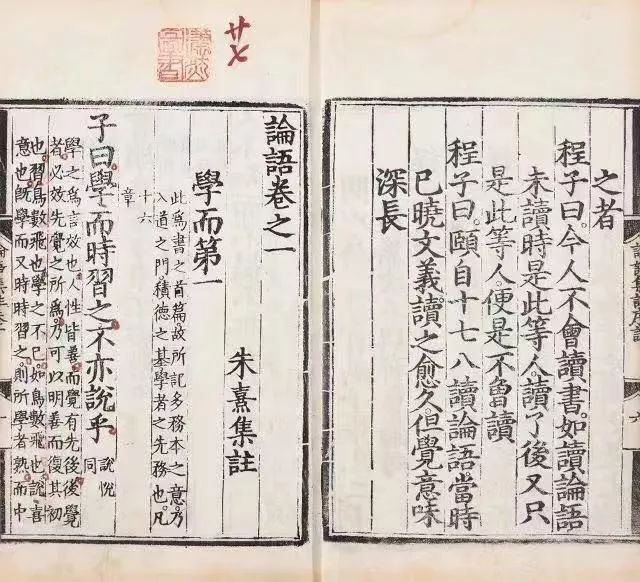 之者
程子曰。今人不會讀書。如讀論語
未讀時是此等人。讀了後又只
是此等人。便是不魯讀
程子曰。頤自十七八讀論語。當時
已曉文義。讀之愈久。但覺意味
深長
廿七
論語卷之一
朱熹集註
學而第一
此爲書之首篇故所記多務本之意。乃
入道之門積德之基學者之先務也。凡
十六
章
子曰。學而時習之不亦說乎
說悅
同
學之爲言效也。人性皆善。而覺有先後後覺
者。必效先覺之所爲。乃可以明善而復其初
也。習鳥數飛也。學之不已。如鳥數飛也。說喜
意也。旣學而又時時習之。則所學者熟。而中